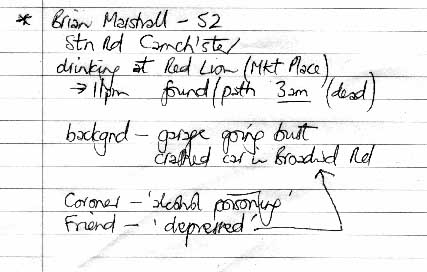 * Brian Marshall - 52
Stn Rd Camch'ster
drinking at Red Lion (Mkt Place)
→ 11pm found/path 3am (dead)
backgnd - garage going bust
crashed car in Broad Rd
Coroner - 'alcohol poisoning'
Friend - 'depressed'